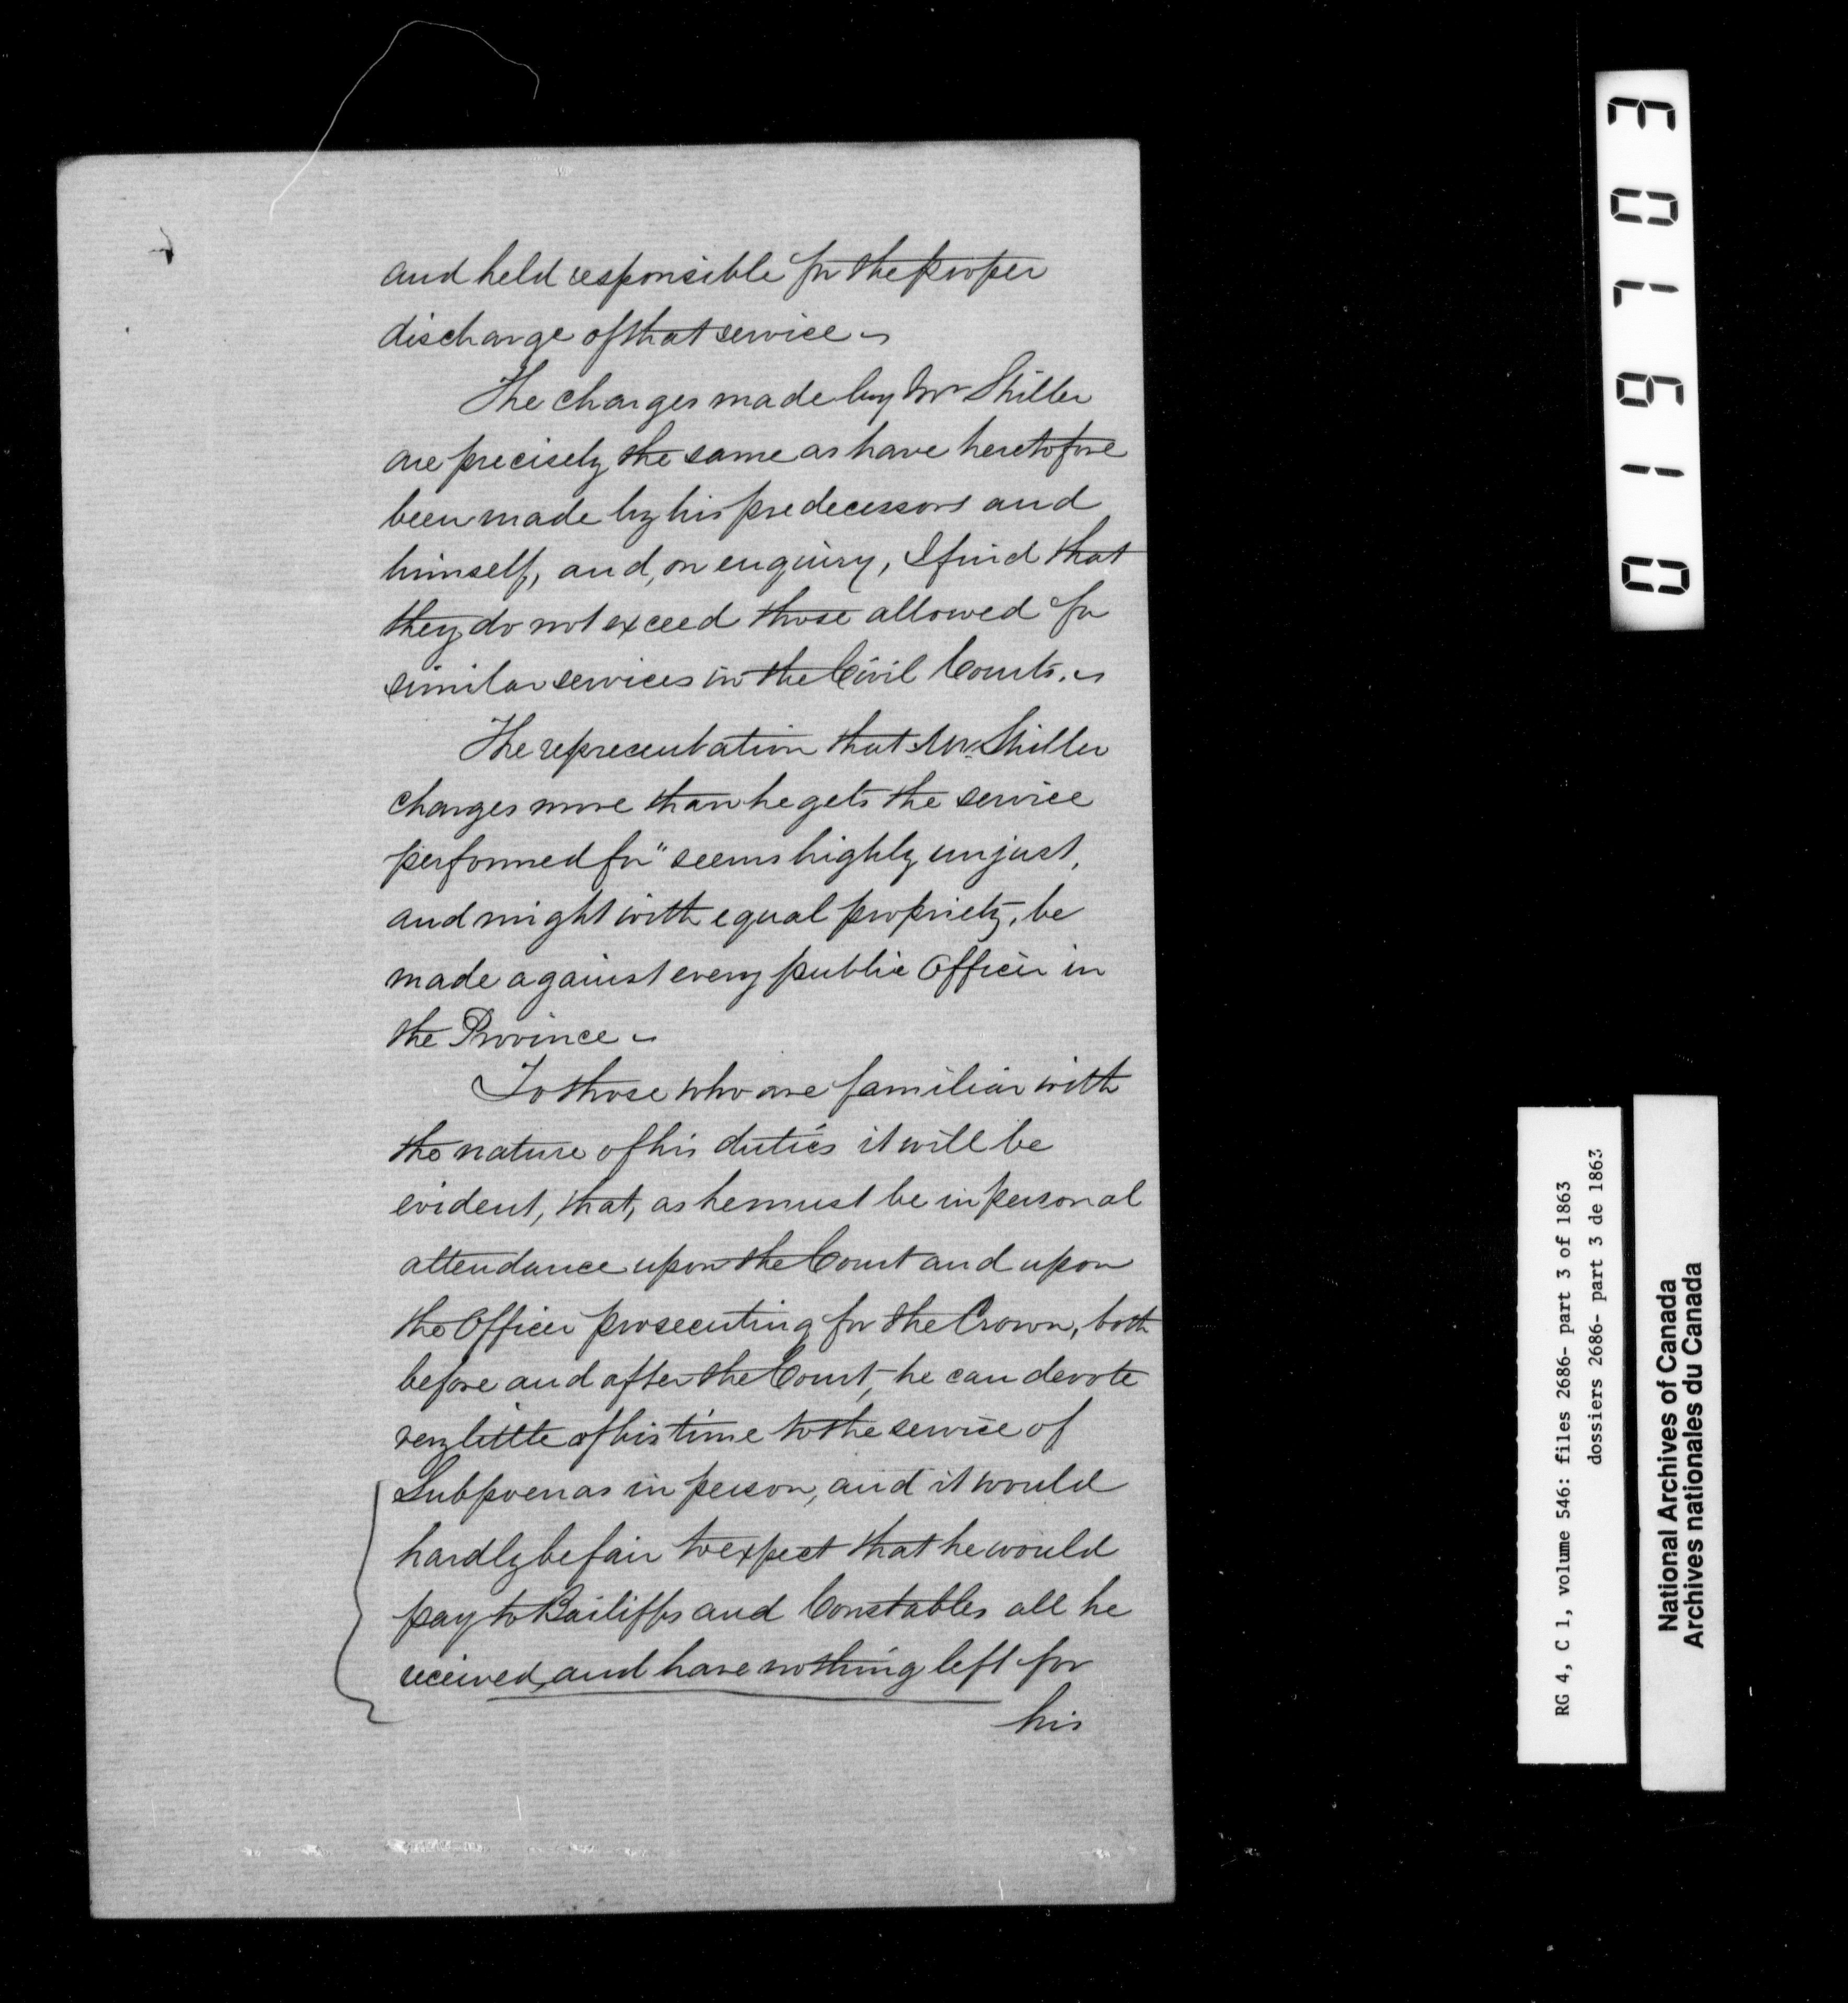 and held responsible for the proper
discharge of that service
The charges made by Mr Shiller
are precisely the same as have heretofore
been made by his predecessors and
himself, and, on enquiry, I find that
they do not exceed those allowed for
similar services in the Civil Courts.
The representation that Mr. Shiller
charges more than he gets the service
performed for" seems highly unjust,
and might with equal propriety, be
made against every public Officer in
the Province
To those who are familiar with
the nature of his duties it will be
evident, that, as he must be in personal
attendance upon the Court and upon
the Officer prosecuting for the Crown, both
before and after the Court, he can devote
very little of his time to the service of
Subpoenas in person, and it would
hardly be fair to expect that he would
pay to Bailiffs and Constables all he
received, and have nothing left for
his
019703
RG 4, C 1, volume 546: files 2686- part 3 of 1863
dossiers 2686- part 3 de 1863
National Archives of Canada
Archives nationales du Canada